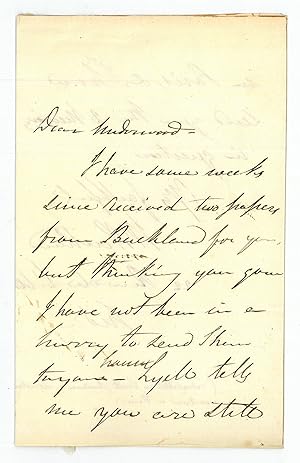 Dear Underwood –
I have some weeks
since received two papers
from Buckland for you
but thinking you gone
I have not been in a
hurry to send them
to you – Lyell tells
me you are still